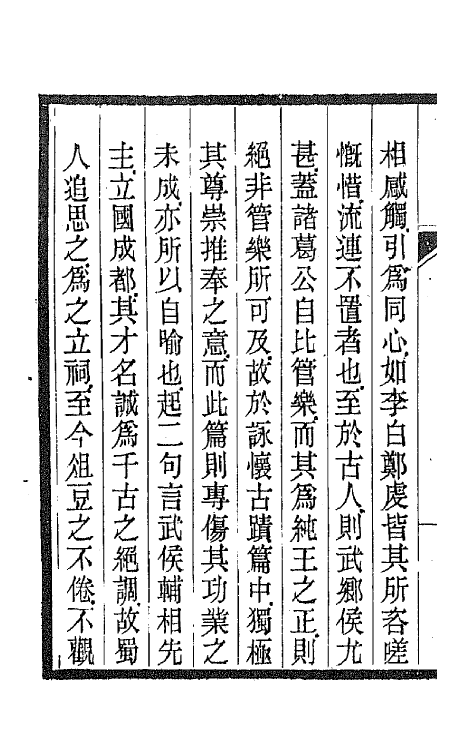 相感觸引為同心如李白鄭虔皆其所咨嗟
慨惜流連不置者也至於古人則武鄉侯尤
甚蓋諸葛公自比管樂而其為純王之正則
絕非管樂所可及故於詠懷古蹟篇中獨極
其尊崇推奉之意而此篇則專傷其功業之
未成亦所以自喻也起二句言武侯輔相先
主立國成都其才名誠為千古之絕調故蜀
人追思之為之立祠至今俎豆之不倦不觀